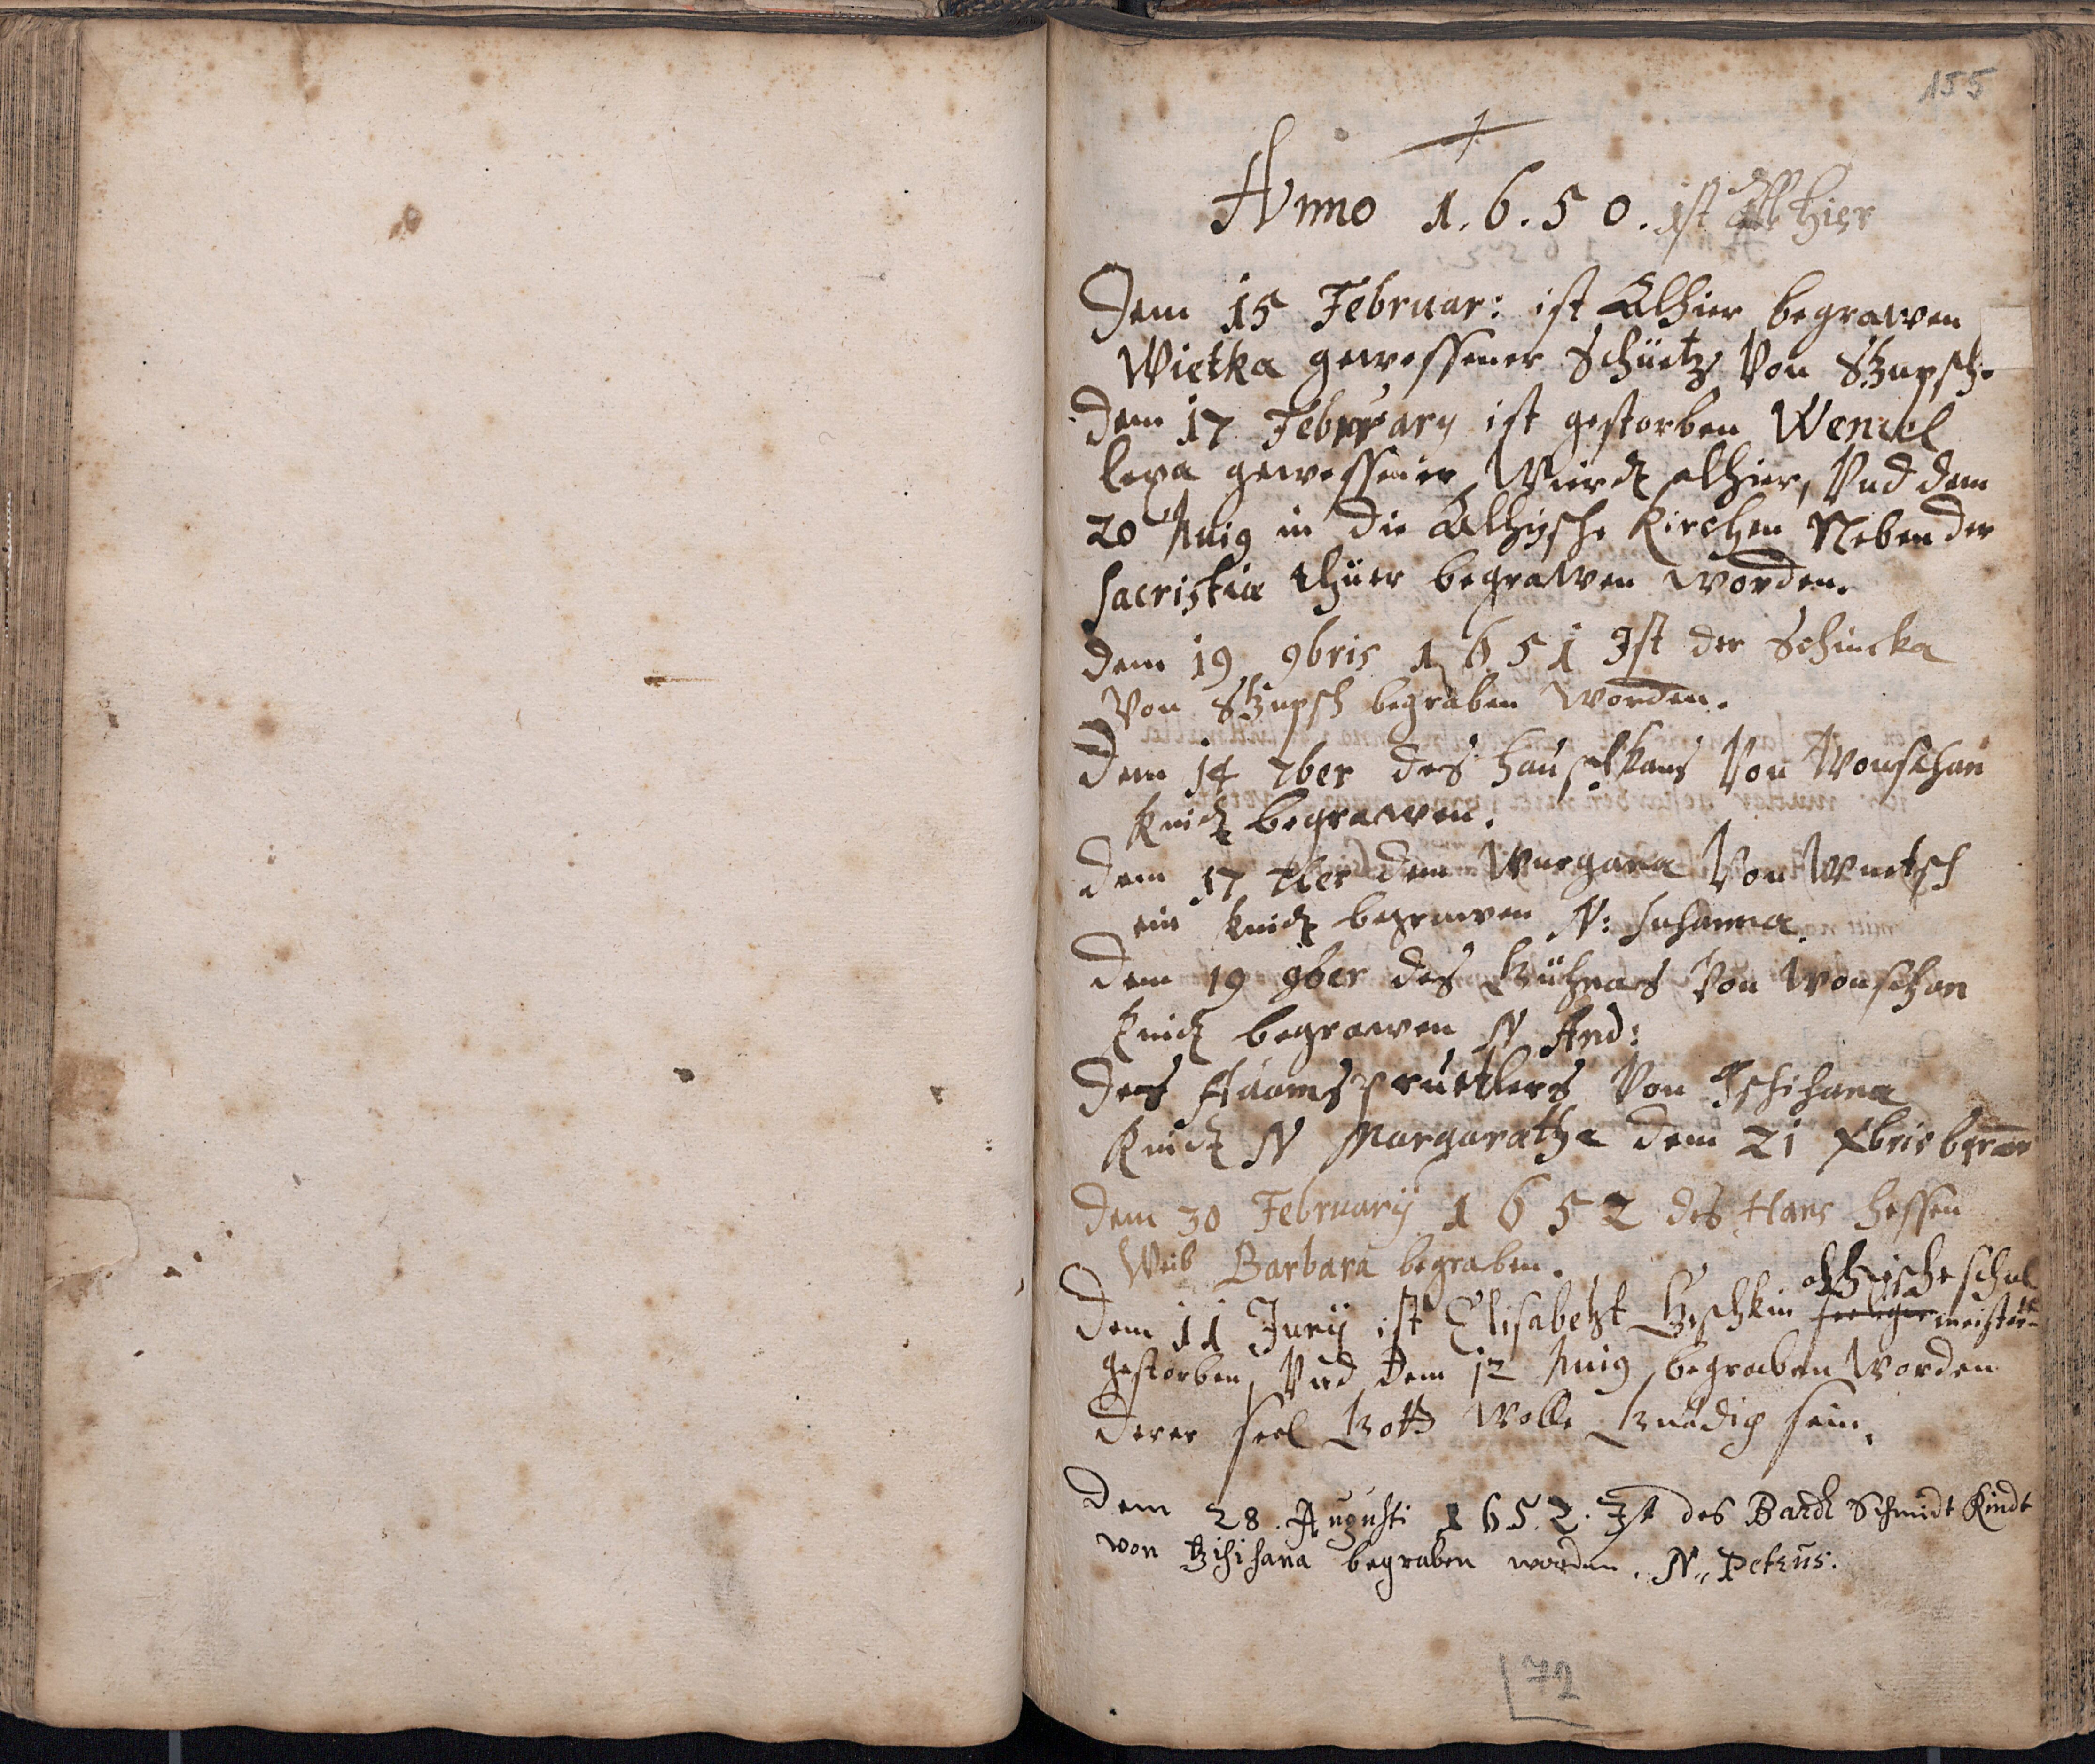 155
Anno 1.6.50. ist allhier
Dem 15 Februar: ist Alhier begrawen
Wietka gewessener Schüetz Von
dem 17 February ist gestorben Wencel
lexa gewessener Würdt alhier, Vnd dem
20 huig in die Alhische Kirchen Neben der
sacristia thüer begrawen worden.
dem 19 9bris 1651 Ist der Schincka
Von begraben worden.
Dem 14 7ber des Von Wonschan
Kindt begrawen.
dem 17 7ber dem Von
ein kindt begrawen N: Susanna.
Dem 19 9ber des Von Wonschan
kindt begrawen N And:
Des Von Tschihana
Kindt N Margaratha dem 21 Xbris begraw
dem 30 February 1652 des Hans hessen
Weib Barbara begraben.
alhiesche schul
Dem 11 Juny ist Elisabeht meisterin
gestorben, Vnd dem 12 huig begraben Worden
derer seel Gott Wolle Gnädig sein.
Dem 28. Augusti 1652. Ist des Bartl Schmidt Kindt
von tzihihana begraben worden. N,, Petrus.
72